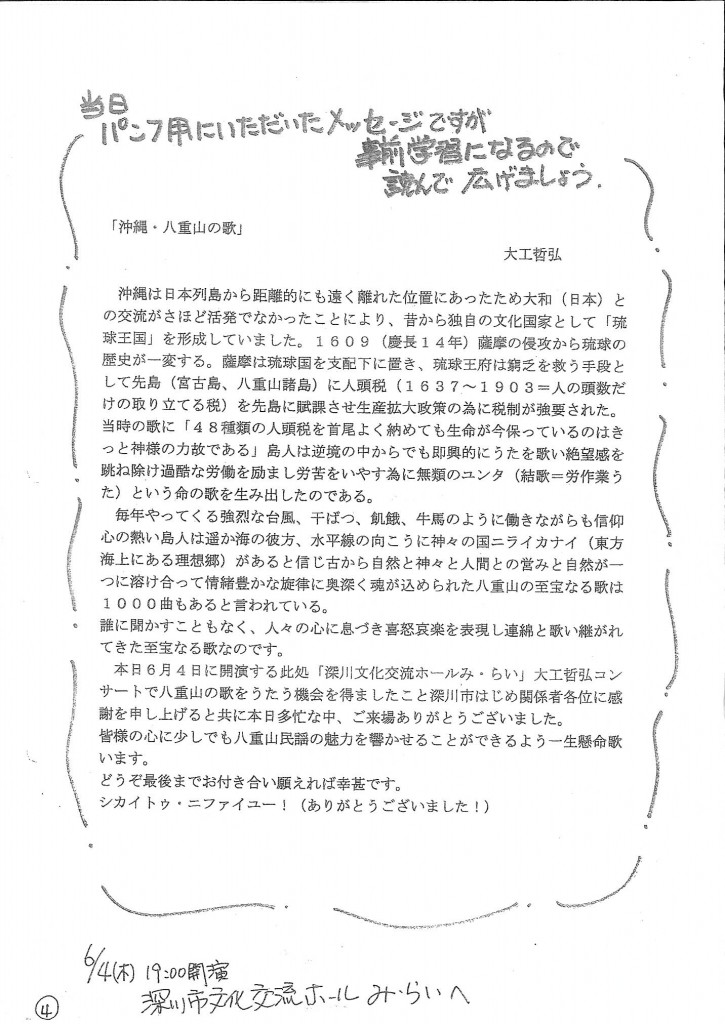 当日
パンフ用にいただいたメッセージですが
事前学習になるので
読んで 広げましょう.
「沖縄・八重山の歌」
大工哲弘
沖縄は日本列島から距離的にも遠く離れた位置にあったため大和（日本）と
の交流がさほど活発でなかったことにより、昔から独自の文化国家として「琉
球王国」を形成していました。１６０９（慶長１４年）薩摩の侵攻から琉球の
歴史が一変する。薩摩は琉球国を支配下に置き、琉球王府は窮乏を救う手段と
して先島（宮古島、八重山諸島）に人頭税（１６３７～１９０３＝人の頭数だ
けの取り立てる税）を先島に賦課させ生産拡大政策の為に税制が強要された。
当時の歌に「４８種類の人頭税を首尾よく納めても生命が今保っているのはき
っと神様の力故である」島人は逆境の中からでも即興的にうたを歌い絶望感を
跳ね除け過酷な労働を励まし労苦をいやす為に無類のユンタ（結歌＝労作業う
た）という命の歌を生み出したのである。
毎年やってくる強烈な台風、干ばつ、飢餓、牛馬のように働きながらも信仰
心の熱い島人は遥か海の彼方、水平線の向こうに神々の国ニライカナイ（東方
海上にある理想郷）があると信じ古から自然と神々と人間との営みと自然が一
つに溶け合って情緒豊かな旋律に奥深く魂が込められた八重山の至宝なる歌は
１０００曲もあると言われている。
誰に聞かすこともなく、人々の心に息づき喜怒哀楽を表現し連綿と歌い継がれ
てきた至宝なる歌なのです。
本日６月４日に開演する此処「深川文化交流ホールみ・らい」大工哲弘コン
サートで八重山の歌をうたう機会を得ましたこと深川市はじめ関係者各位に感
謝を申し上げると共に本日多忙な中、ご来場ありがとうございました。
皆様の心に少しでも八重山民謡の魅力を響かせることができるよう一生懸命歌
います。
どうぞ最後までお付き合い願えれば幸甚です。
シカイトゥ・ニファイユー！（ありがとうございました！）
6/4(木) 19:00開演
深川市文化交流ホール み・らいへ
④